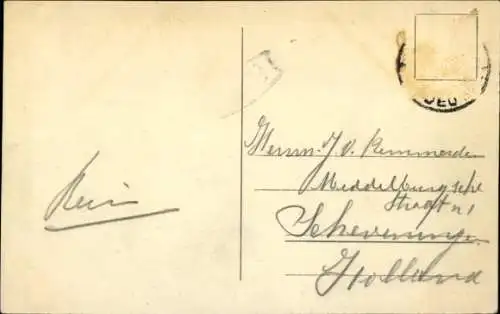 Rein
Herrn. J. v. Remmerden
Middelburgsche
Straat n 1
Scheveningen
Holland